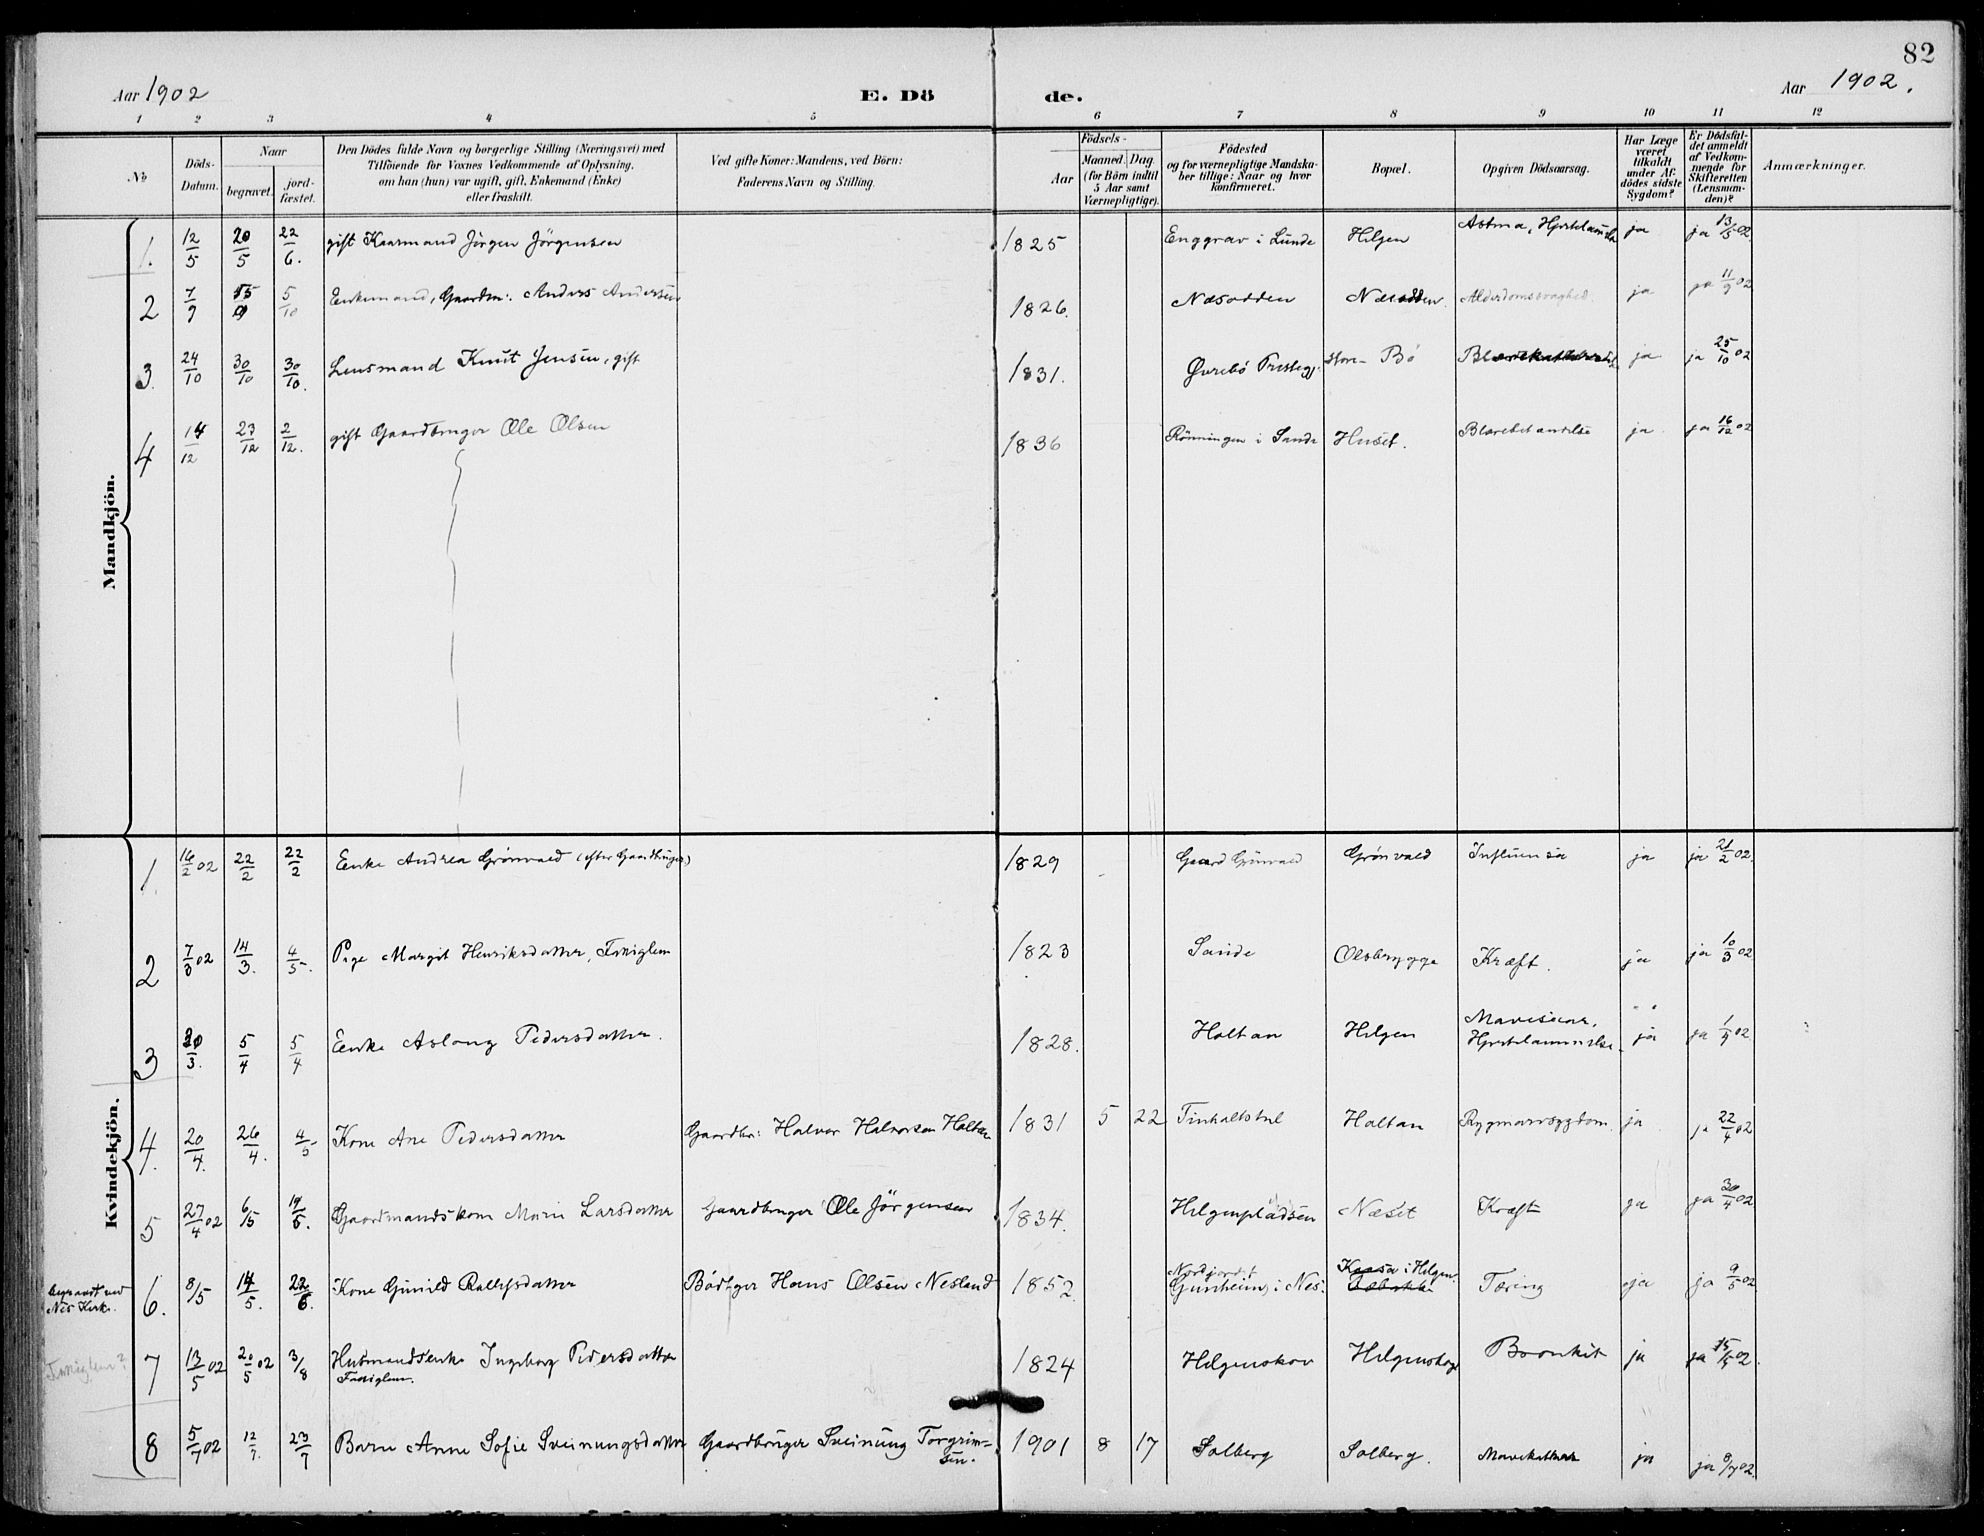 82
Aar 1902
E. Dö
de.
Aar 1902.
1 2 3 4 5 6 7 8 9 10 11 12
No
Döds-Datum.
Naar
begravet.
jord-fæstet.
Den Dödes fulde Navn og borgerlige Stilling (Næringsvei) med
Tilföiende for Voxnes Vedkommende af Oplysning,
om han (hun) var ugift, gift, Enkemand (Enke)
eller fraskilt.
Ved gifte Koner: Mandens, ved Börn:
Faderens Navn og Stilling.
Födsels-
Aar
Maaned. Dag
(for Börn indtil
5 Aar samt
Værnepligtige).
Födested
og for værnepligtige Mandska-
ber tillige: Naar og hvor
konfirmeret.
Bopæl.
Opgiven Dödsaarsag.
Har Læge
været
tilkaldt
under Af-
dödes sidste
Sygdom?
Er Dödsfal-
det anmeldt
af Vedkom-
mende for
Skifteretten
(Lensman-
den)?
Anmærkninger.
Mandkjön.
1. 12/5 20/5 22/6. gift Kaarmand Jörgen Jörgensen 1825 Enggrav i Lunde Helgen Astma, ja ja 13/5 02
2 7/9 15/9 5/10 Enkemand, Gaardm: Anders Andersen 1826. Næsodden Næsodden. Alderdomssvaghed. ja ja 11/9 02
3. 24/10 30/10 30/10. Lensmand Knut Jensen, gift 1831. Øvrebö Prestegj: store- Bö ja ja 25/10 02
4 14/12 23/12 2/12. gift Gaardbruger Ole Olsen 1836 Rönningen i Sande Huset. Blærebetændelse ja ja 16/12 02
Kvindekjön.
1. 16/2 02 22/2 22/2 Enke Andrea Grönvald (efter Gaardbruger) 1829 Gaard Grönvald Grönvald Influensa ja ja 21/2 02.
2 7/3 02 14/3. 4/5. Pige Margit Henriksdatter, Fattiglem 1823 Sande Olsbrygge Kræft. ja ja 10/3 02
3 30/3. 5/4 5/4 Enke Aslaug Pedersdatter. 1828. Holtan Helgen Mavesaar,
Hjertelammelse ja ja 1/4 02
4. 20/4. 26/4. 4/5 Kone Ane Pedersdatter Gaardbr: Halvor Halvorsen Holtan 1831 5 22 Tinholtstul Holtan Rygmarvsygdom. ja ja 22/4 02
5 27/4 02 6/5 14/5. Gaardmandskone Marie Larsdatter Gaardbruger Ole Jörgensen 1834. Helgenpladsen Næset Kræft ja ja 30/4 02
begravet ved
Nes Kirke.
6. 8/5 14/5. 22/6. Kone Gunild Rollefsdatter Bödker Hans Olsen Nesland 1852. Nordjordet
Gunheim, i Nes. Kaasa i Helgen. Tæring ja ja 9/5 02
Fattiglem?
7 13/5 02 20/5 02 3/8 Husmandsenke Ingeborg Pedersdatter
Fattiglem. 1824 Helgenskov Helgenshage Bronkit ja ja 15/5 02.
8 5/7 02 12/7. 23/7 Barn Anne Sofie Sveinungsdatter Gaardbruger Sveinung Torgrim-
sen. 1901 8 17 Solberg Solberg. Mavekatarr ja ja 8/7 02.